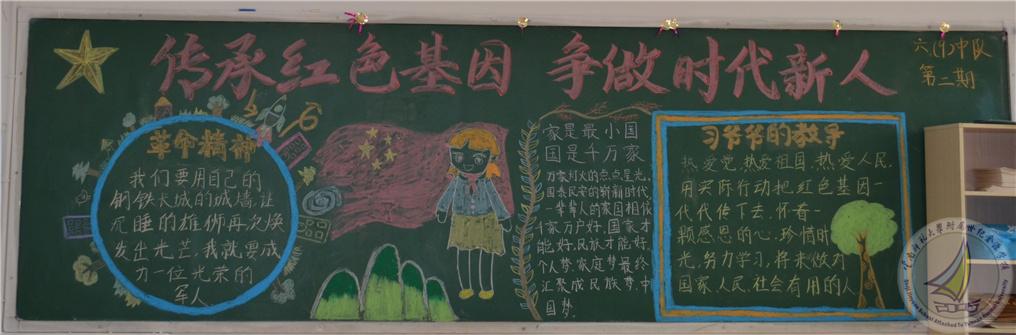 传承红色基因 争做时代新人
六(9)中队
第二期
革命精神
我们要用自己的
钢铁长城的城墙，让
沉睡的雄狮再次焕
发出光芒，我就要成
为一位光荣的
军人
家是最小国
国是千万家
万家灯火的点点星光，
国泰民安的崭新时代，
一辈辈人的家国相依
千家万户好，国家才
能好，民族才能好。
个人梦、家庭梦最终
汇聚成民族梦，中
国梦。
习爷爷的教导
热爱党，热爱祖国，热爱人民，
用实际行动把红色基因一
代代传下去，怀着一
颗感恩的心，珍惜时
光，努力学习，将来做对
国家、人民、社会有用的人